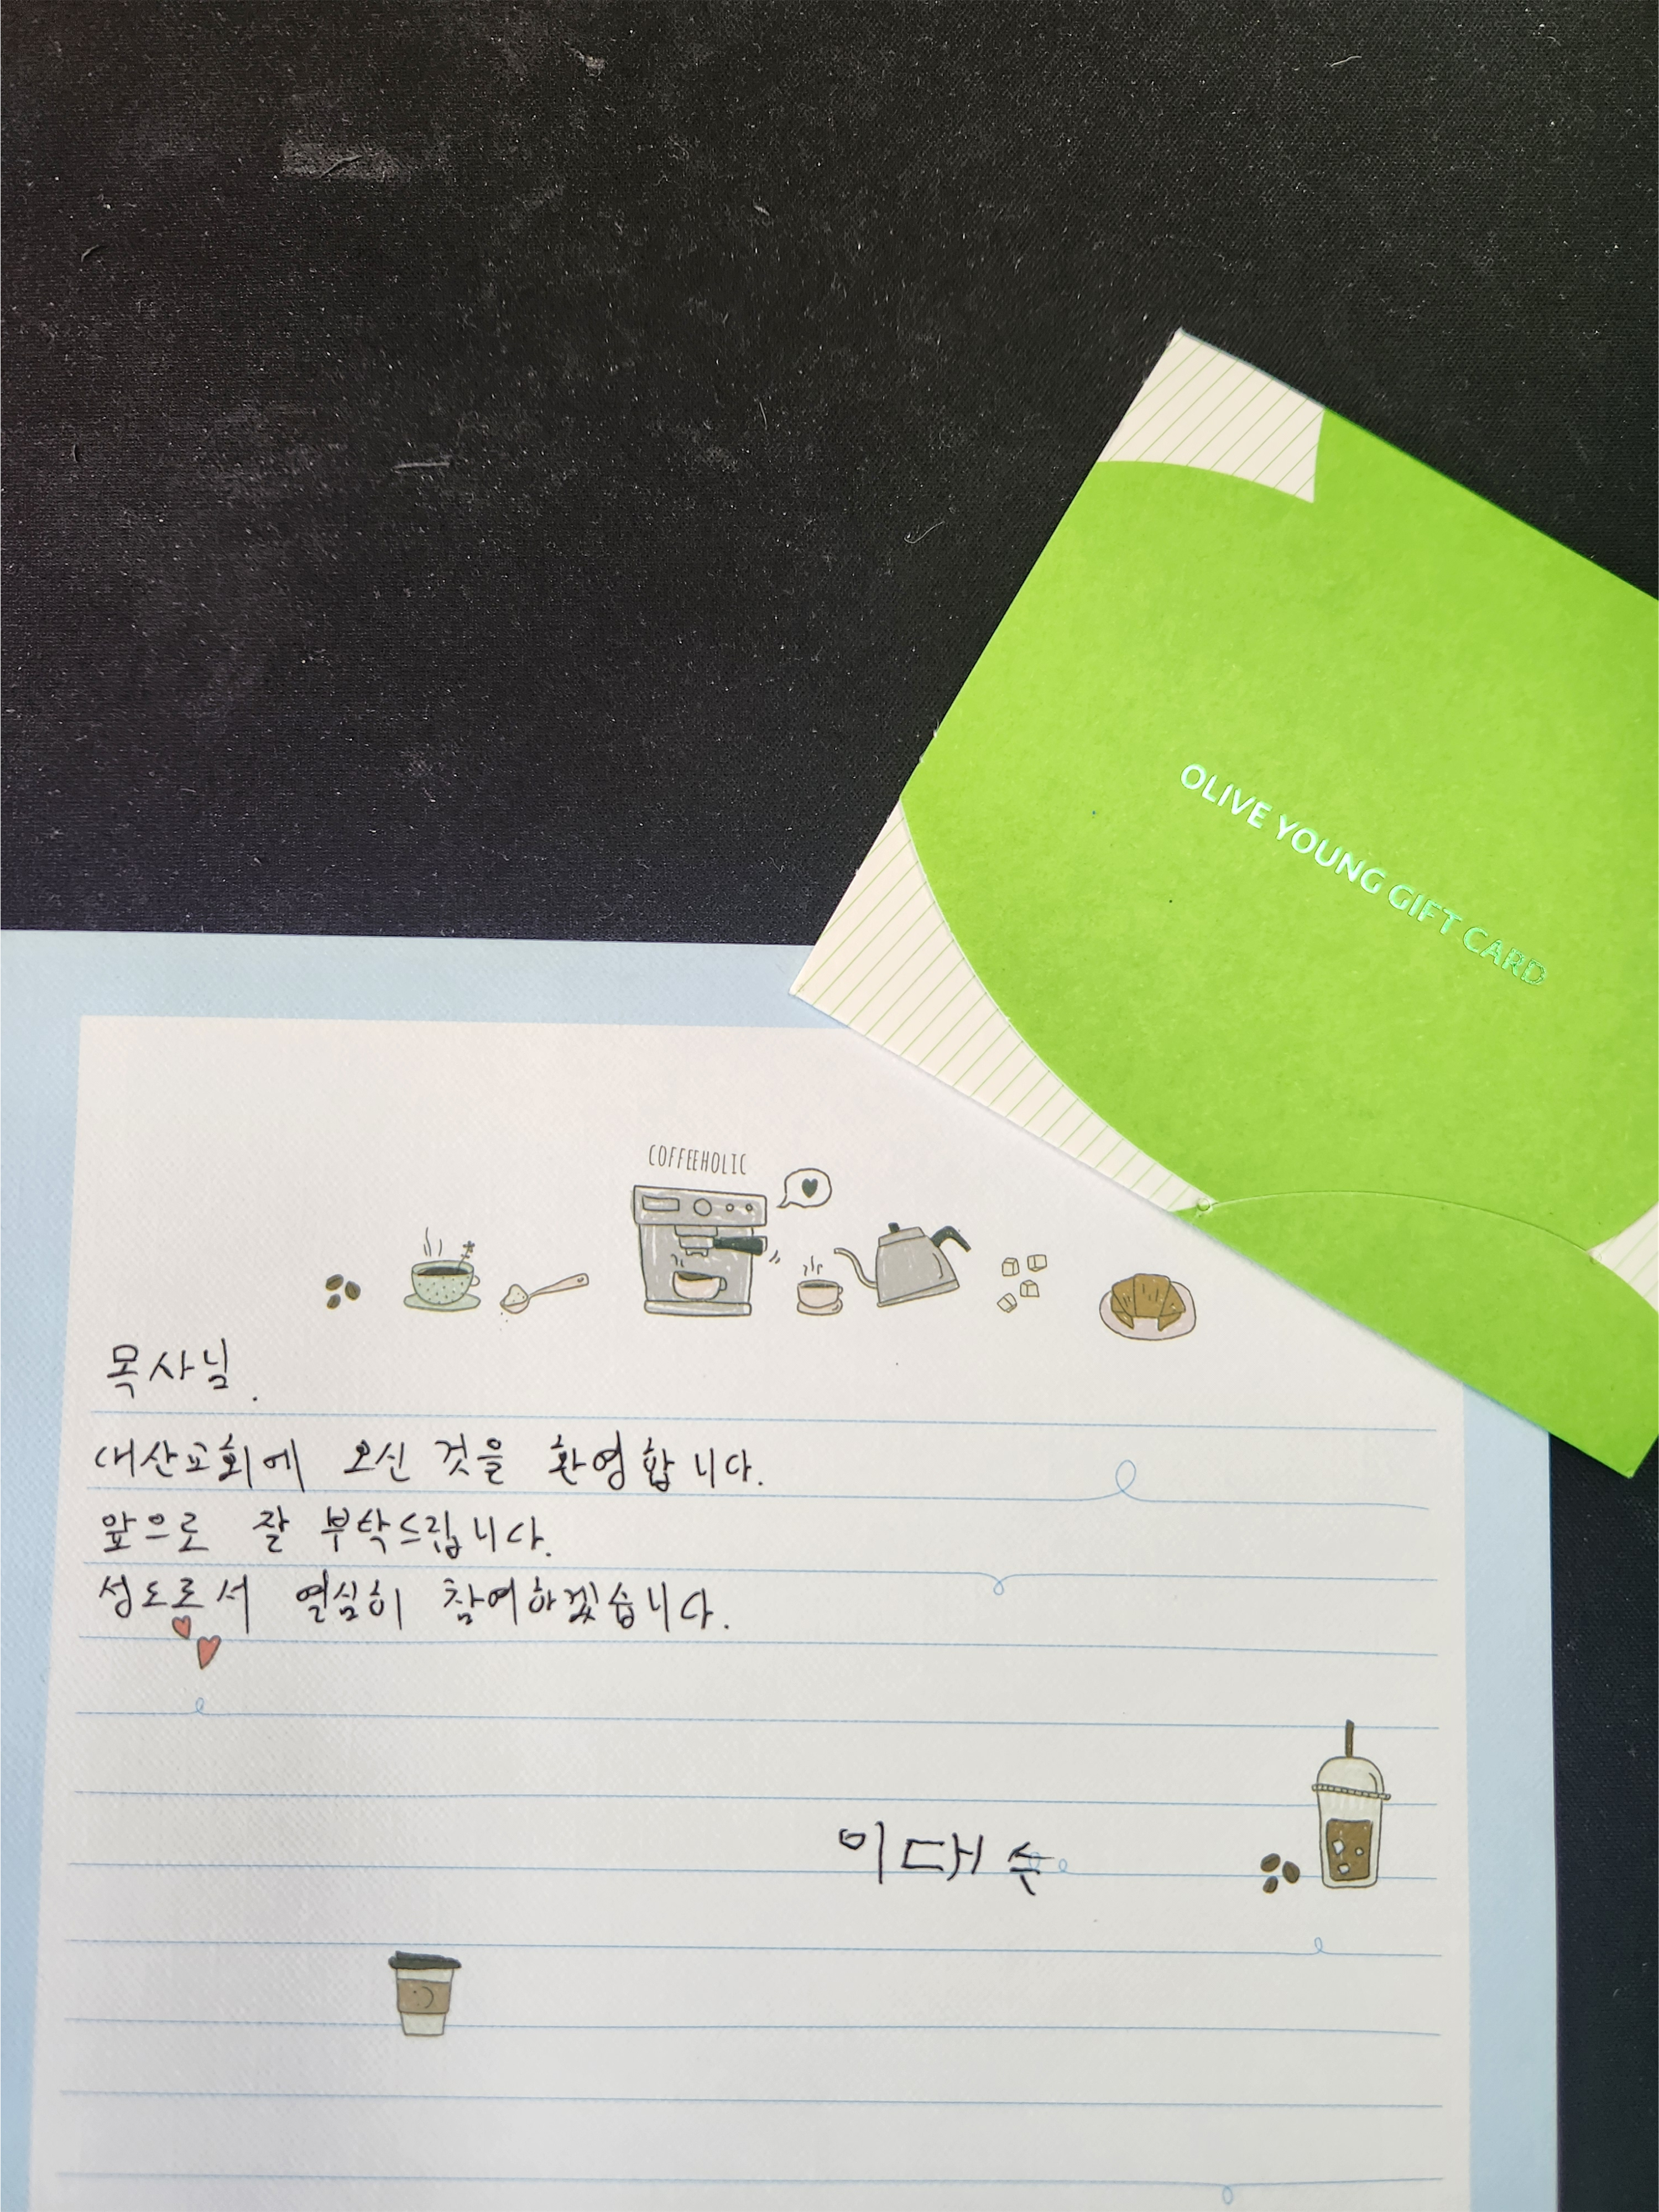 OLIVE YOUNG GIFT CARD
COFFEEHOLIC
목사님.
대산교회에 오신 것을 환영합니다.
앞으로 잘 부탁드립니다.
성도로서 열심히 참여하겠습니다.
이대수